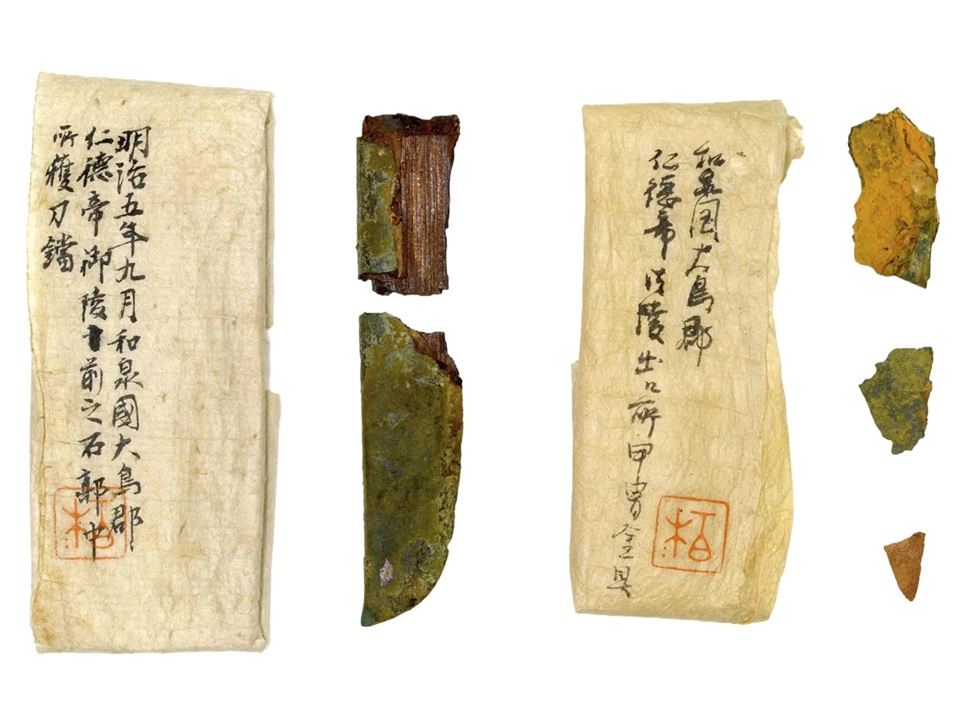 明治五年九月和泉國大鳥郡
仁德帝御陵前之石郭中
所獲刀鐺
和泉国大鳥郡
仁德帝御陵出所甲冑金具
栢